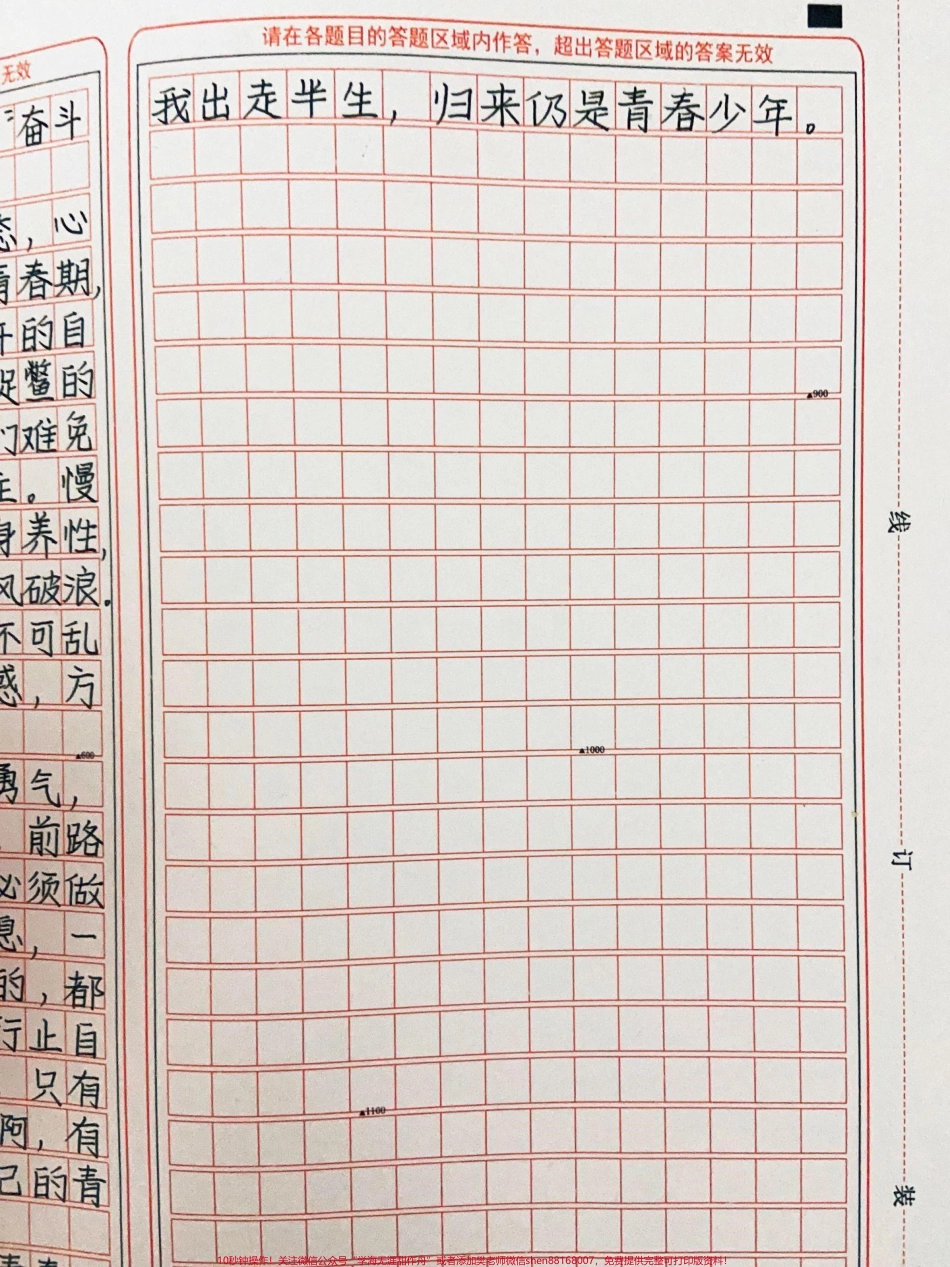 无效
奋斗
态,心
青春期,
的自
捉鳖的
们难免
。慢
身养性,
风破浪.
不可乱
惑,方
▲600
勇气,
前路
必须做
息,一
的,都
行止自
只有
啊,有
己的青
请在各题目的答题区域内作答,超出答题区域的答案无效
我出走半生,归来仍是青春少年。
▲900
▲1000
▲1100
线
订
装
10秒钟操作!关注微信公众号“学海无涯甜作舟”或者添加樊老师微信shen88168007,免费提供完整可打印版资料!